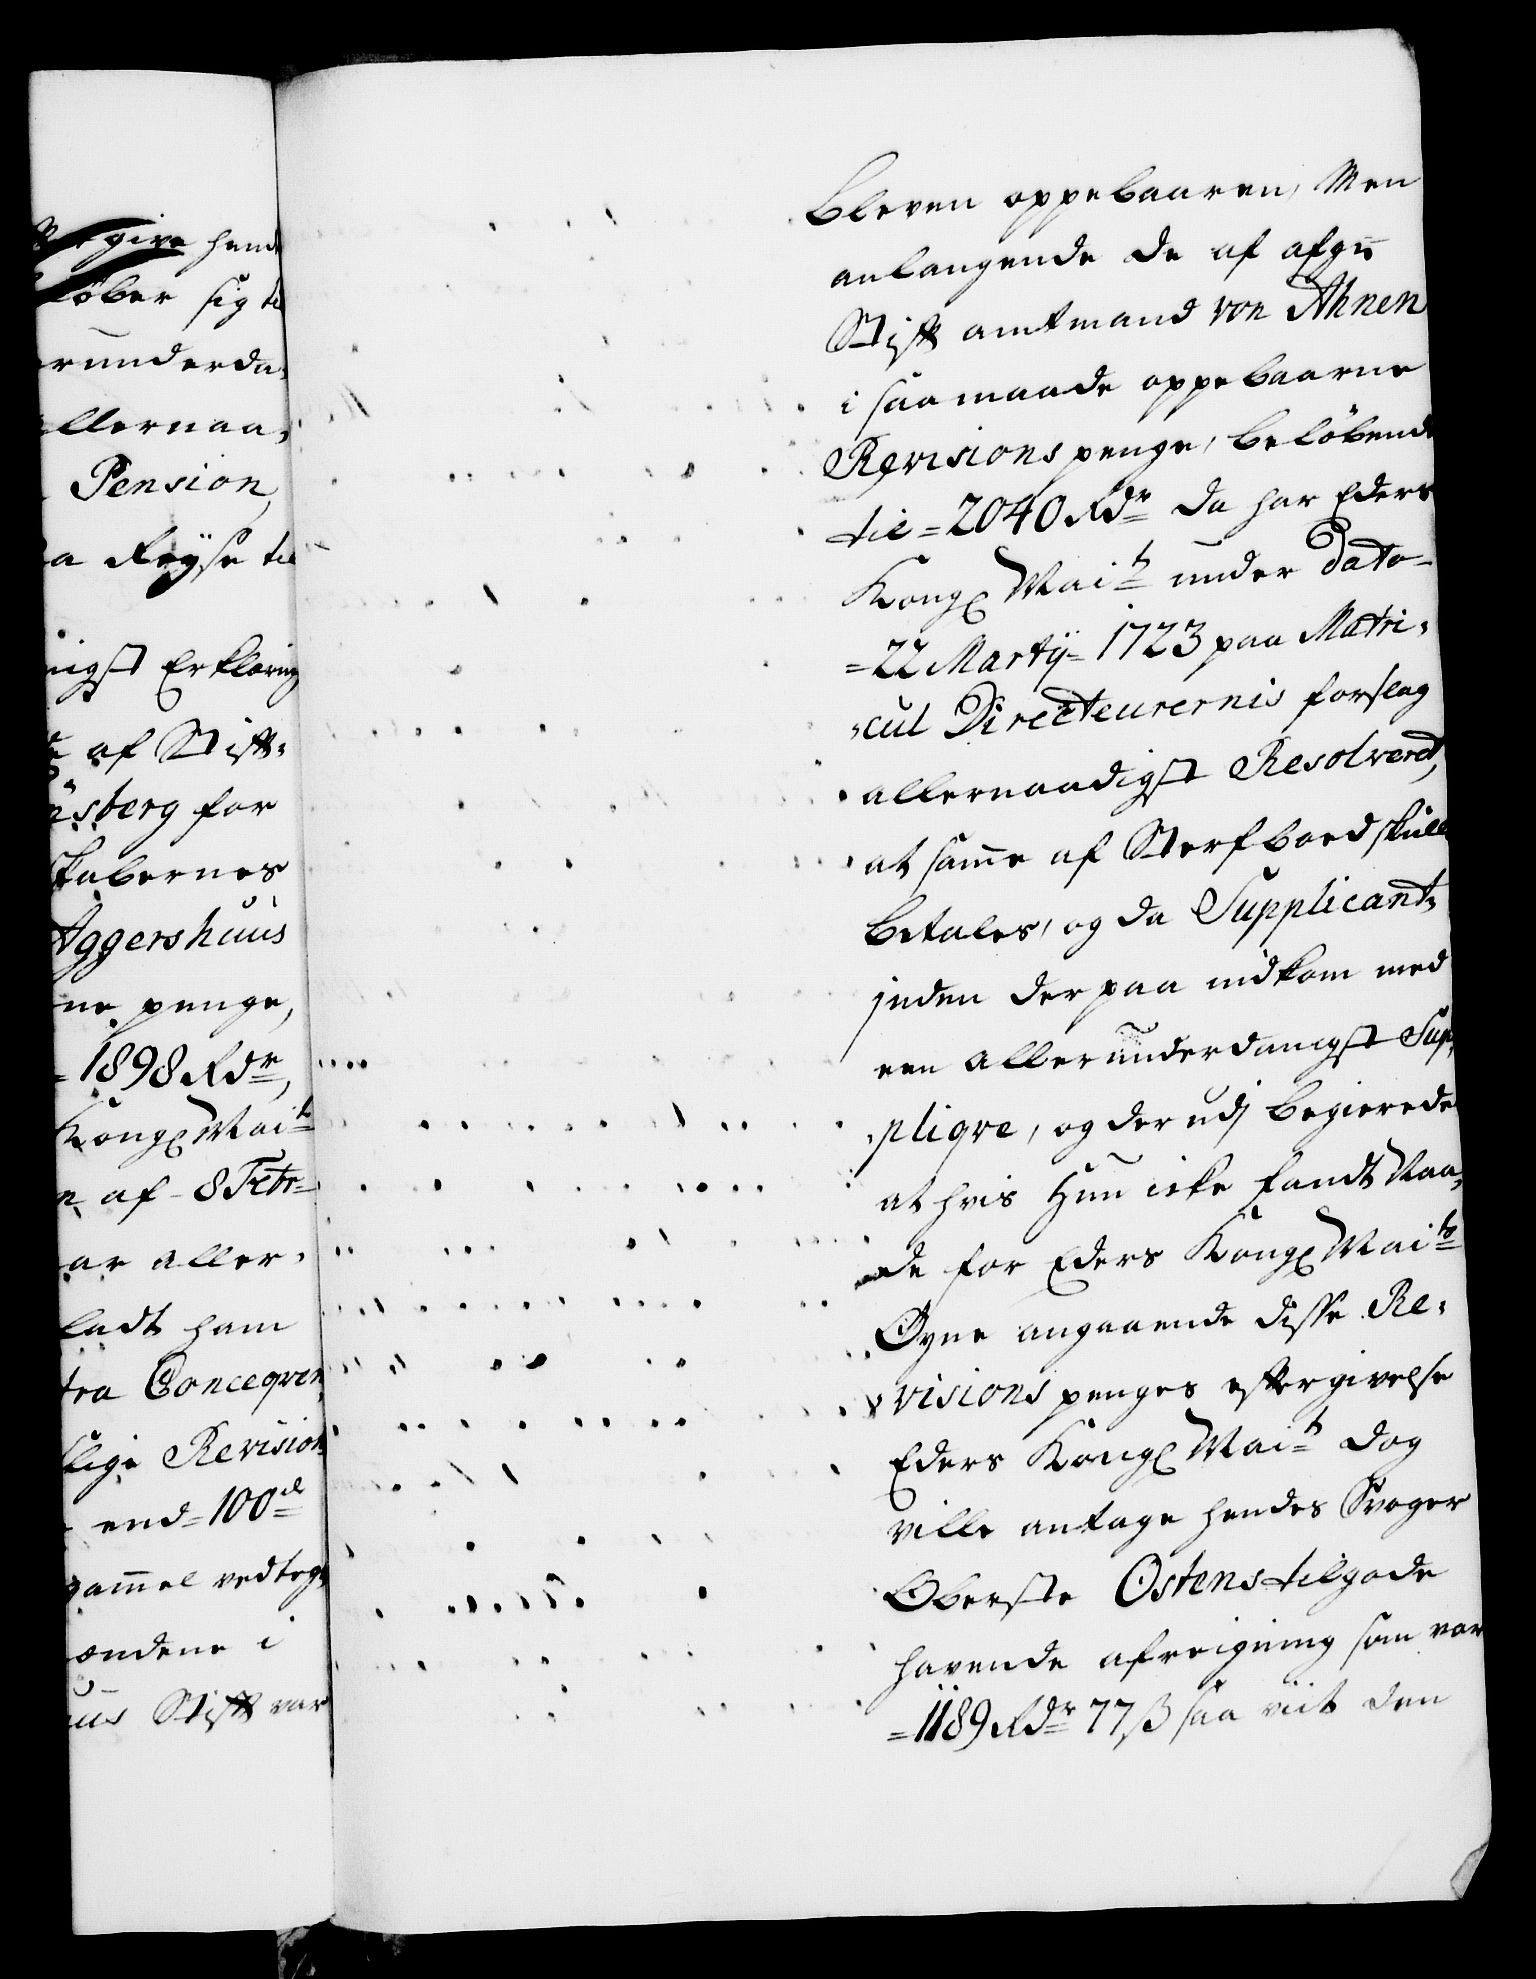 give hend
løber sig til
erunderda,
llernaa,
Pension,
a Reyse til
nigst Erklæring
af Stift,
nsberg for
skabernes
Aggershuus
ne penge,
=1898 Rdr,
Kongl Mait
n af - 8 Febr
ar aller,
ladt ham
tra Conceqven
slige Revision
end = 100de
gammel vedtegt
ændene i
uus Stift var
bleven oppebaaren, Men
anlangende de af afgn
Stift amtmand von Ahnen
i saa maade oppebaarne
Revisions penge, beløbende
til = 2040 Rdr da har Eders
Kongl Mait under Dato
= 22 Martij = 1723 paa Matri,
,cul Directeurernis forslag
allernaadigst Resolveret,
at samme af Sterfboed skulle
betales, og da Supplicant,
inden der paa indkom med
een allerunderdanigst Sup,
,pliqve, og der udj begierede
at hvis Hun icke fandt Naa,
de for Eders Kongl Maits
Øyne angaaende disse Re,
visions penges eftergivelse
Eders Kongl Mait dog
ville antage hendes Svoger
Oberste Ostens tilgode
havende afreigning som var
= 1189 Rdr 77 ß saa viit den